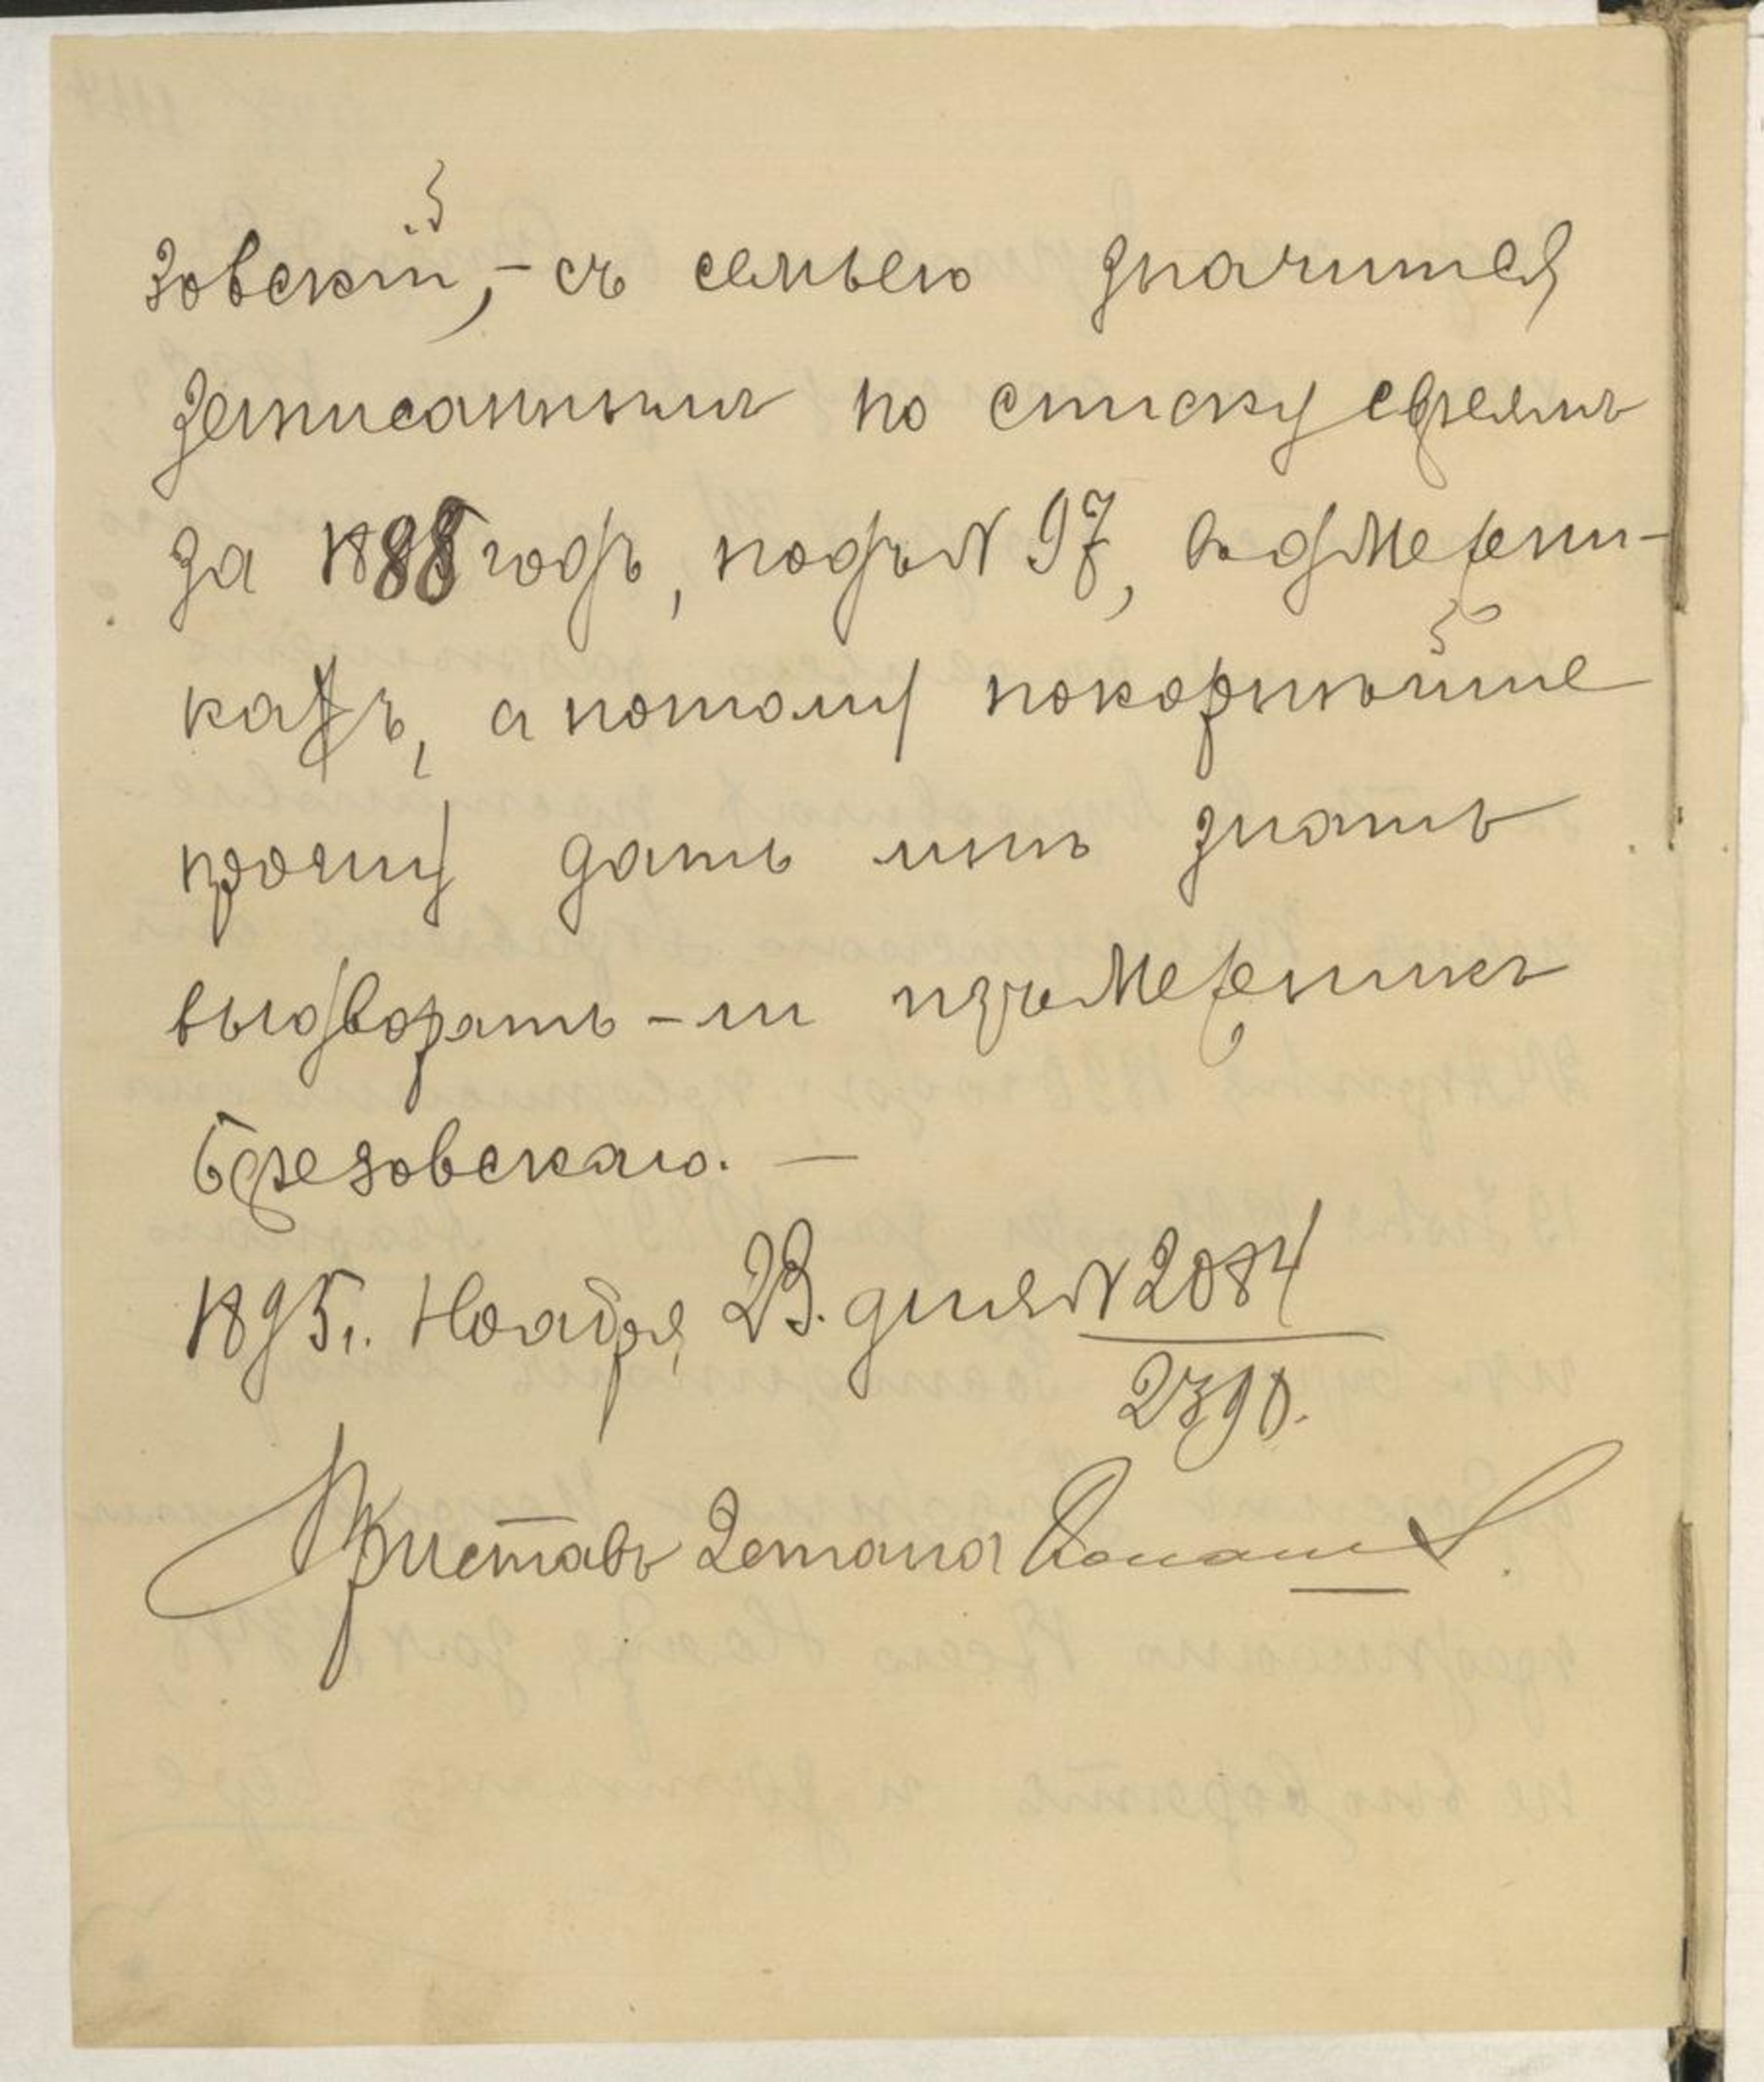 зовскій, – съ семьею значится
записаннымъ по списку евреямъ
за 1888 годъ, подъ № 97, въ дМережи-
кахъ, а потому покорнѣйше
прошу дать мнѣ знать
выдворять – ли изъ Мережикъ
Березовскаго. —
1895 г. Ноября 23. дня № 2084
2390.
Приставъ 2 стана